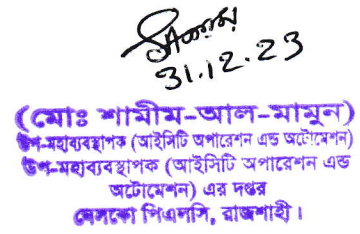 31.12.23
(মোঃ শামীম-আল-মামুন)
উপ-মহাব্যবস্থাপক (আইসিটি অপারেশন এন্ড অটোমেশন)
উপ-মহাব্যবস্থাপক (আইসিটি অপারেশন এন্ড
অটোমেশন) এর দপ্তর
নেসকো পিএলসি, রাজশাহী।